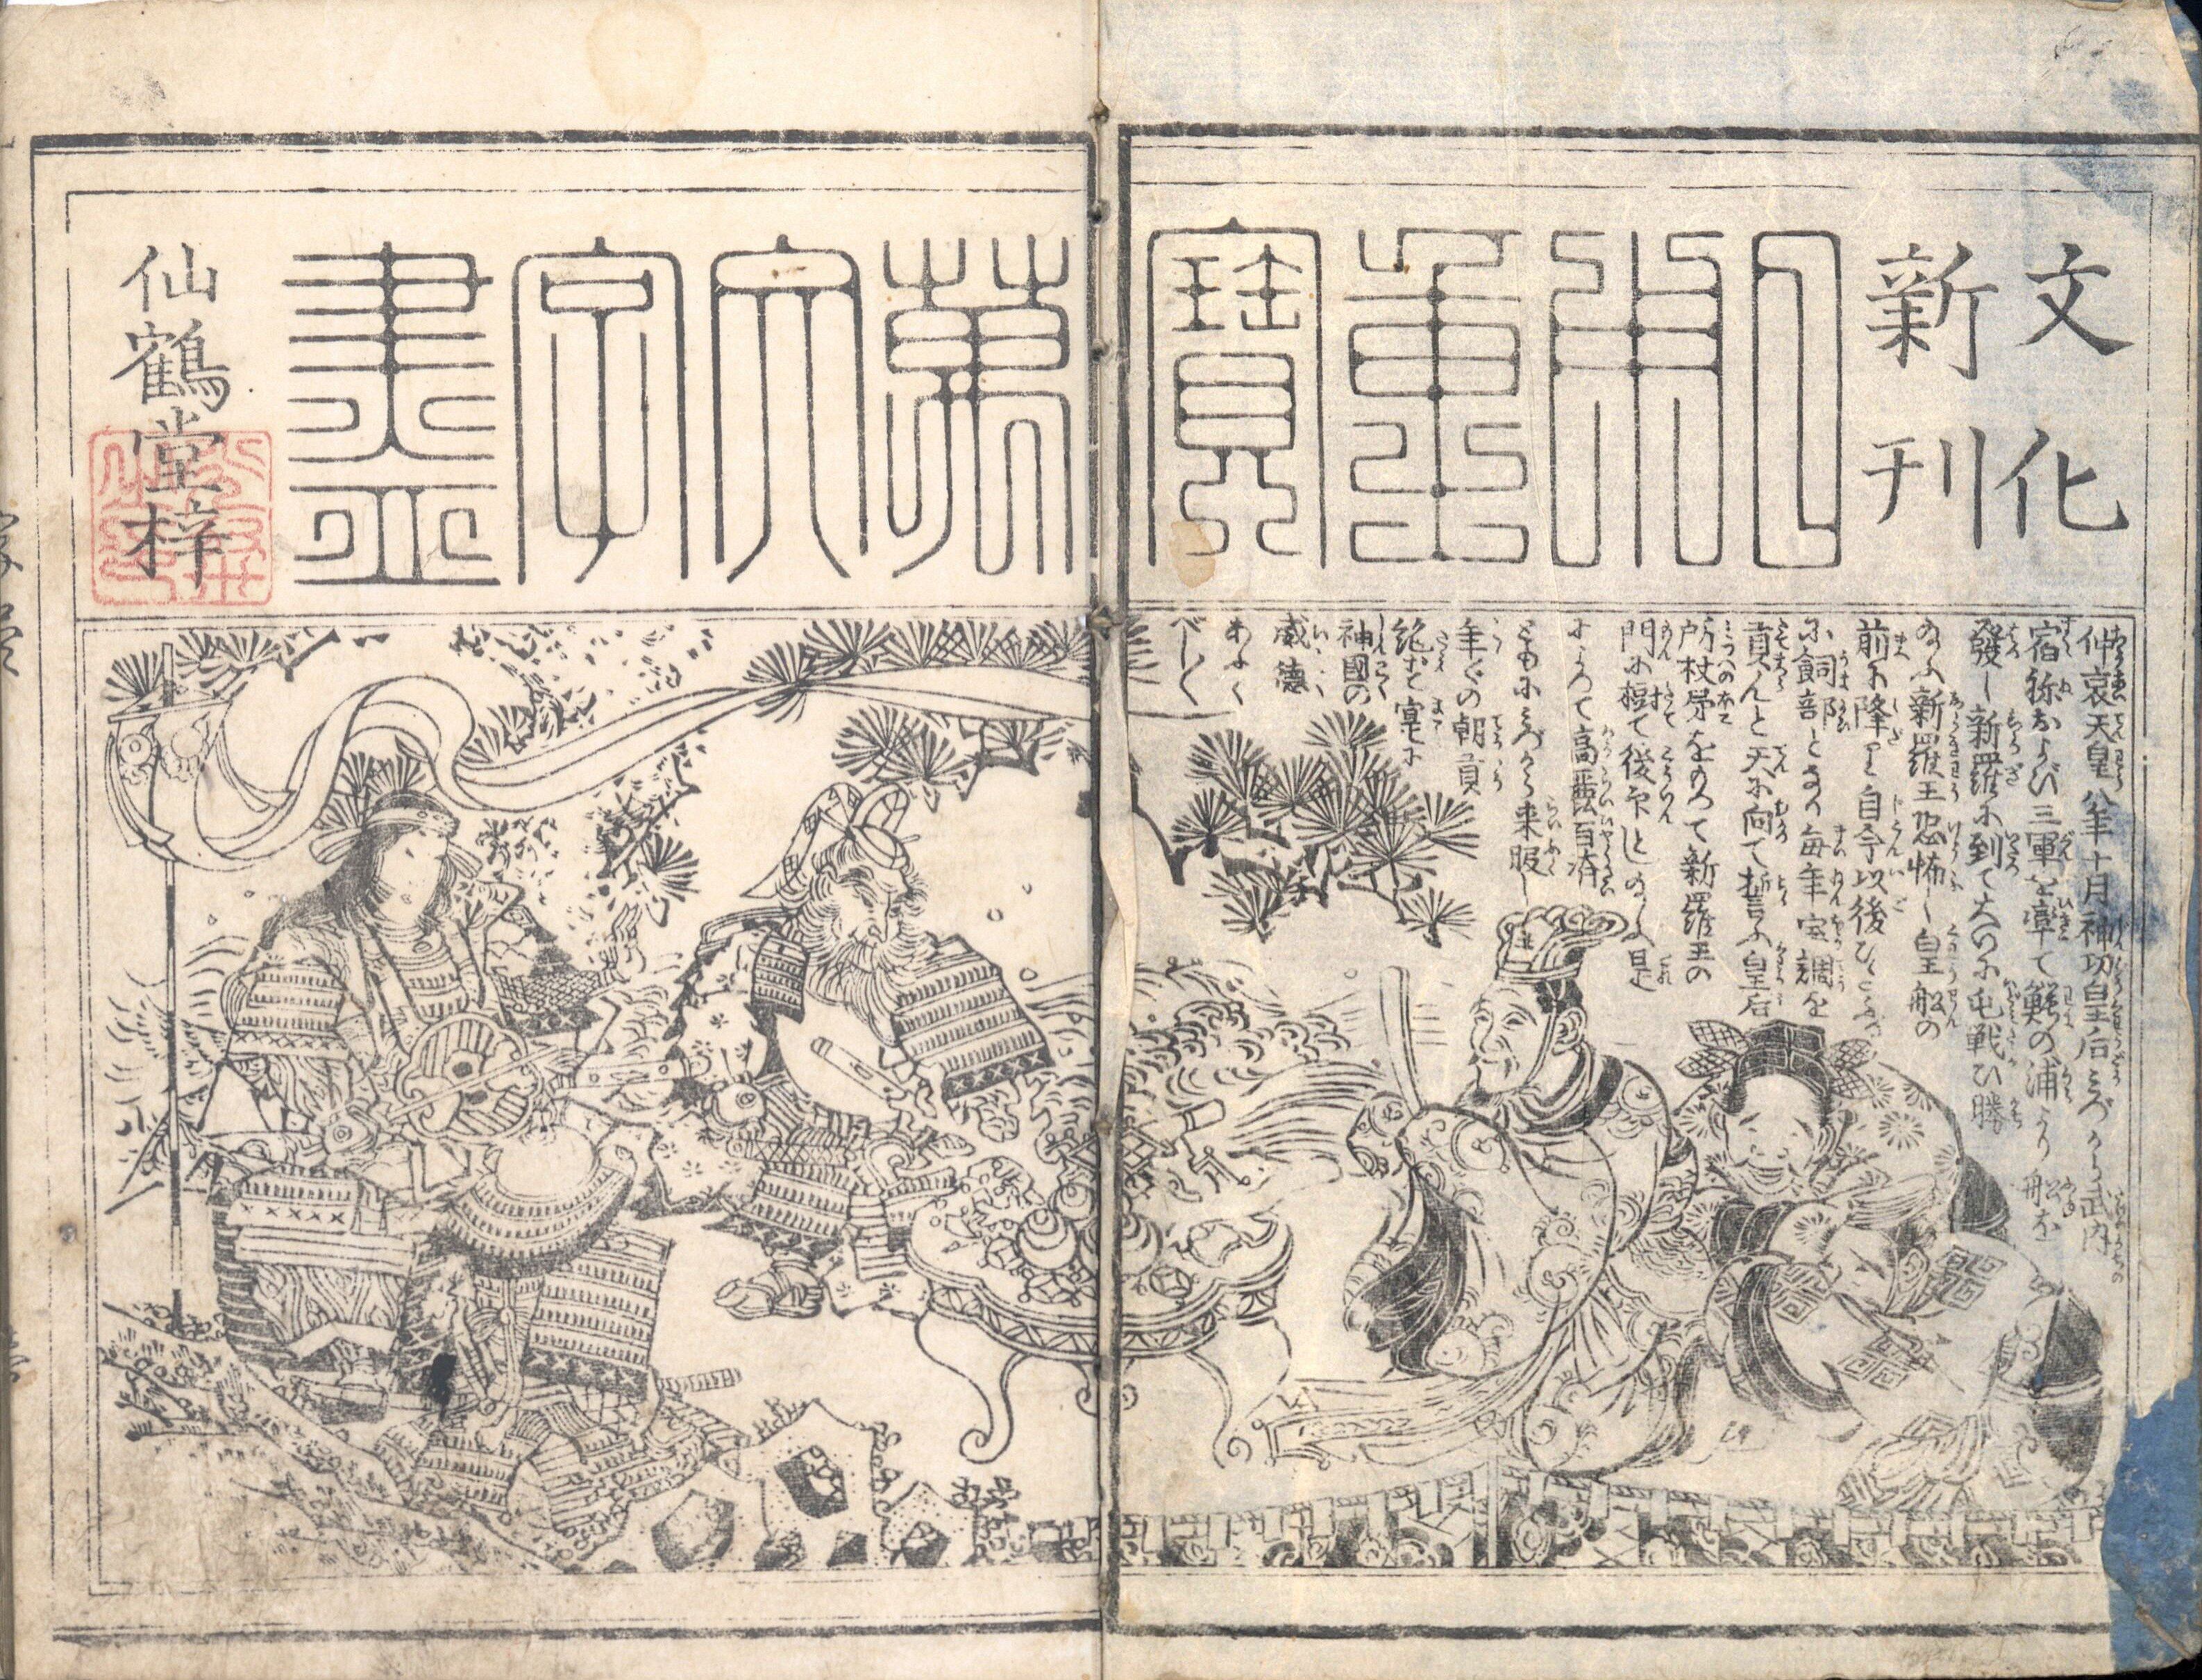 文化
新刊
日用重寶
萬字盡
仙鶴堂梓
仲哀天皇八年十月神功皇后みづから武内
宿祢および三軍を率て鰐の浦より船を
發し新羅に到て大ひに戦ひ勝
給ふ新羅王恐怖し皇船の
前に降り自今以後ひとへ
に飼部となり毎年宝調を
貢んと天に向て誓ふ皇后
所杖矛をもつて新羅王の
門に樹て後印とし給ふ是
によつて高麗百済
ともにみづから来服し
年〻の朝貢
絶ず寔に
神國の
威徳
あふぐ
べし〱